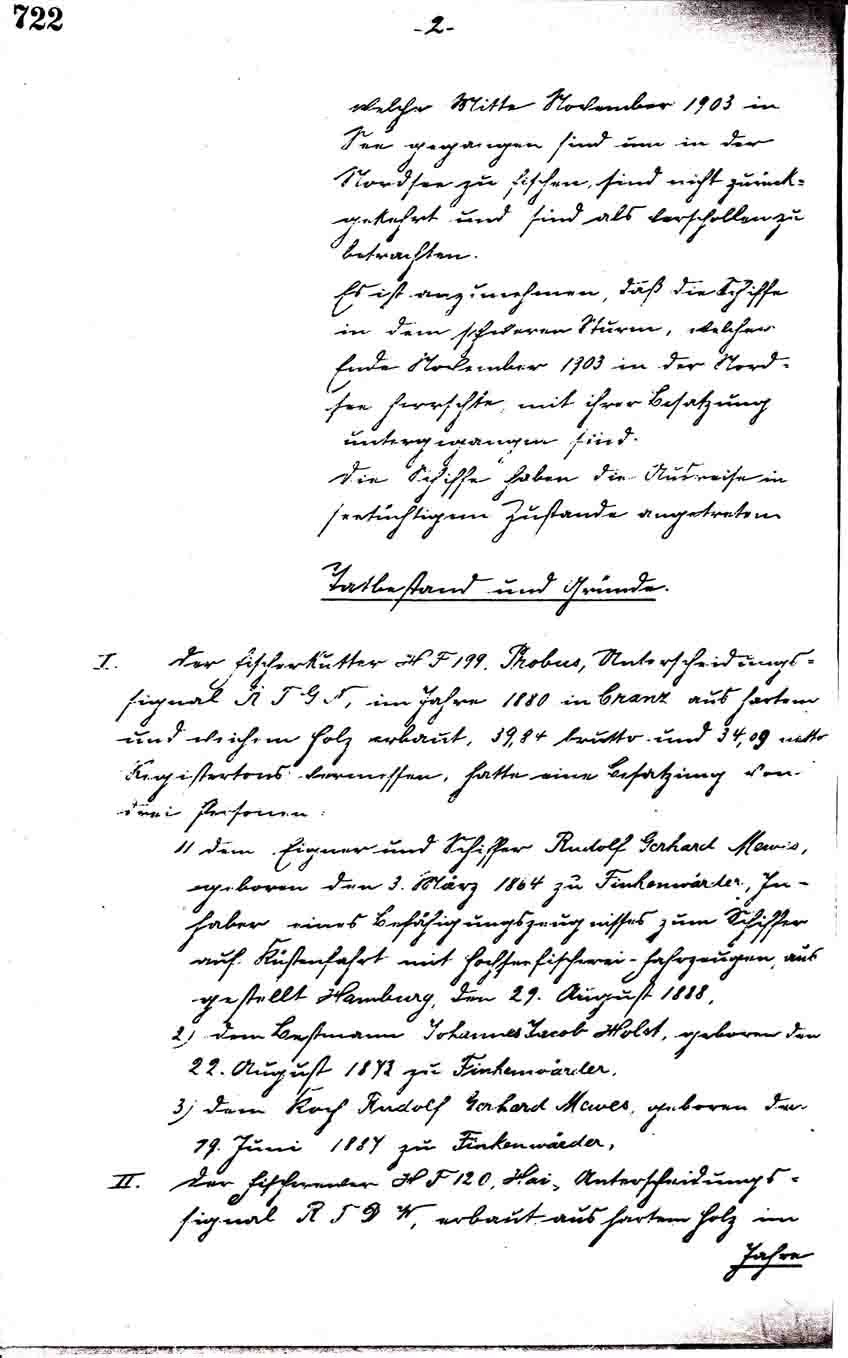 722
-2-
welche Mitte November 1903 in
See gegangen sind um in der
Nordsee zu fischen, sind nicht zurück=
gekehrt und sind als verschollen zu
betrachten.
Es ist anzunehmen, daß die Schiffe
in dem schweren Sturm, welcher
Ende November 1903 in der Nord=
see herrschte, mit ihrer Besatzung
untergegangen sind.
Die Schiffe haben die Ausreise in
seetüchtigem Zustande angetreten
Tatbestand und Gründe.
I. Der Fischerkutter H F 199. Phobus, Unterscheidungs=
signal R T G N, im Jahre 1880 in Cranz aus hartem
und weichem Holz erbaut, 39,84 brutto und 34,09 netto
Registertons vermessen, hatte eine Besatzung von
drei Personen:
1) dem Eigner und Schiffer Rudolf Gerhard Mewis,
geboren den 3. März 1864 zu Finkenwärder, In-
haber eines Befähigungszeugnisses zum Schiffer
auf Küstenfahrt mit Hochseefischerei-Fahrzeugen, aus
gestellt Hamburg, den 29. August 1888,
2) dem Bestmann Johannes Jacob Holst, geboren den
22. August 1872 zu Finkenwärder,
3) dem Koch Rudolf Gerhard Mewes, geboren den
19. Juni 1887 zu Finkenwärder,
II. Der Fischerewer H F 120, Hai, Unterscheidungs=
signal R T D W, erbaut aus hartem Holz im
Jahre